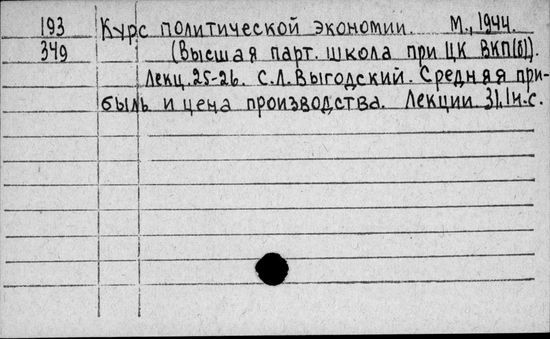 193 Курс политической экономии. М., 1944.
349 (Высшая парт. школа при ЦК ВКП(б)).
Лекц. 25-26. С.Л. Выгодский. Средняя при-
быль и цена производства. Лекции 31, 1н.с.